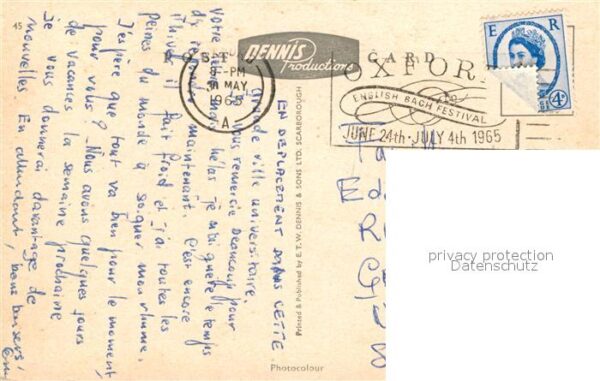 45
DENNIS
Productions
CARD
E R
4D
8-PM
31 MAY
1965
A
OXFORD
ENGLISH BACH FESTIVAL
JUNE 24th - JULY 4th 1965
EN DEPLACEMENT DANS CETTE
grande ville universitaire.
vous remercie beaucoup pour
votre hélas je n'ai guère le temps
de maintenant. C'est encore
l'hiver il fait froid et j'ai toutes les
peines du monde à soigner mon rhume.
J'espère que tout va bien pour le moment
pour vous? Nous avons quelques jours
de vacances la semaine prochaine
Je vous donnerai davantage de
nouvelles En attendant, bons baisers!
Printed & Published by E.T.W. DENNIS & SONS LTD. SCARBOROUGH
Photocolour
privacy protection
Datenschutz